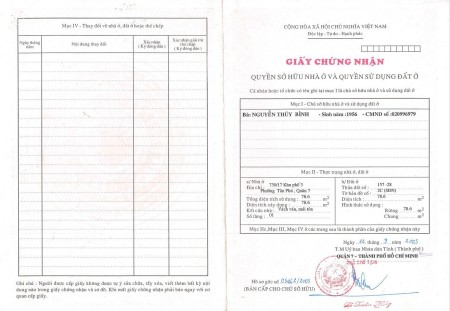 Mục IV - Thay đổi về nhà ở, đất ở hoặc thế chấp
Ngày tháng năm
Nội dung thay đổi
Xác nhận (Ký đóng dấu)
Xác nhận giải trừ thế chấp (Ký đóng dấu)
Ghi chú : Người được cấp giấy không được tự ý sửa chữa, tẩy xóa, viết thêm bất kỳ nội
dung nào trong giấy chứng nhận và sơ đồ. Khi mất giấy chứng nhận phải báo ngay với cơ
quan cấp giấy.
CỘNG HÒA XÃ HỘI CHỦ NGHĨA VIỆT NAM
Độc lập - Tự do - Hạnh phúc
GIẤY CHỨNG NHẬN
QUYỀN SỞ HỮU NHÀ Ở VÀ QUYỀN SỬ DỤNG ĐẤT Ở
Cá nhân hoặc tổ chức có tên ghi tại mục I là chủ sở hữu nhà ở và sử dụng đất ở
Mục I - Chủ sở hữu nhà ở và sử dụng đất ở
Bà: NGUYỄN THÚY BÌNH - Sinh năm :1956 - CMND số :020996979
Mục II - Thực trạng nhà ở, đất ở
a/ Nhà ở
Địa chỉ : 730/17 Khu phố 3
Phường Tân Phú , Quận 7
Tổng diện tích sử dụng : 78.6 m2
Diện tích xây dựng : 78.6 m2
Kết cấu nhà : Vách ván, mái tôn
Số tầng : 01
b/ Đất ở
Thửa đất số : 157 -28
Tờ bản đồ số :
Diện tích : 78.6 m2
Hình thức sử dụng :
Riêng : 78.6 m2
Chung : m2
Mục IIc, Mục III, Mục IV ở các trang sau là thành phần của giấy chứng nhận này
Ngày tháng năm 2003
T.M Ủy ban Nhân dân Tỉnh ( Thành phố )
QUẬN 7 - THÀNH PHỐ HỒ CHÍ MINH
Hồ sơ gốc số
(BẢN CẤP CHO CHỦ SỞ HỮU)